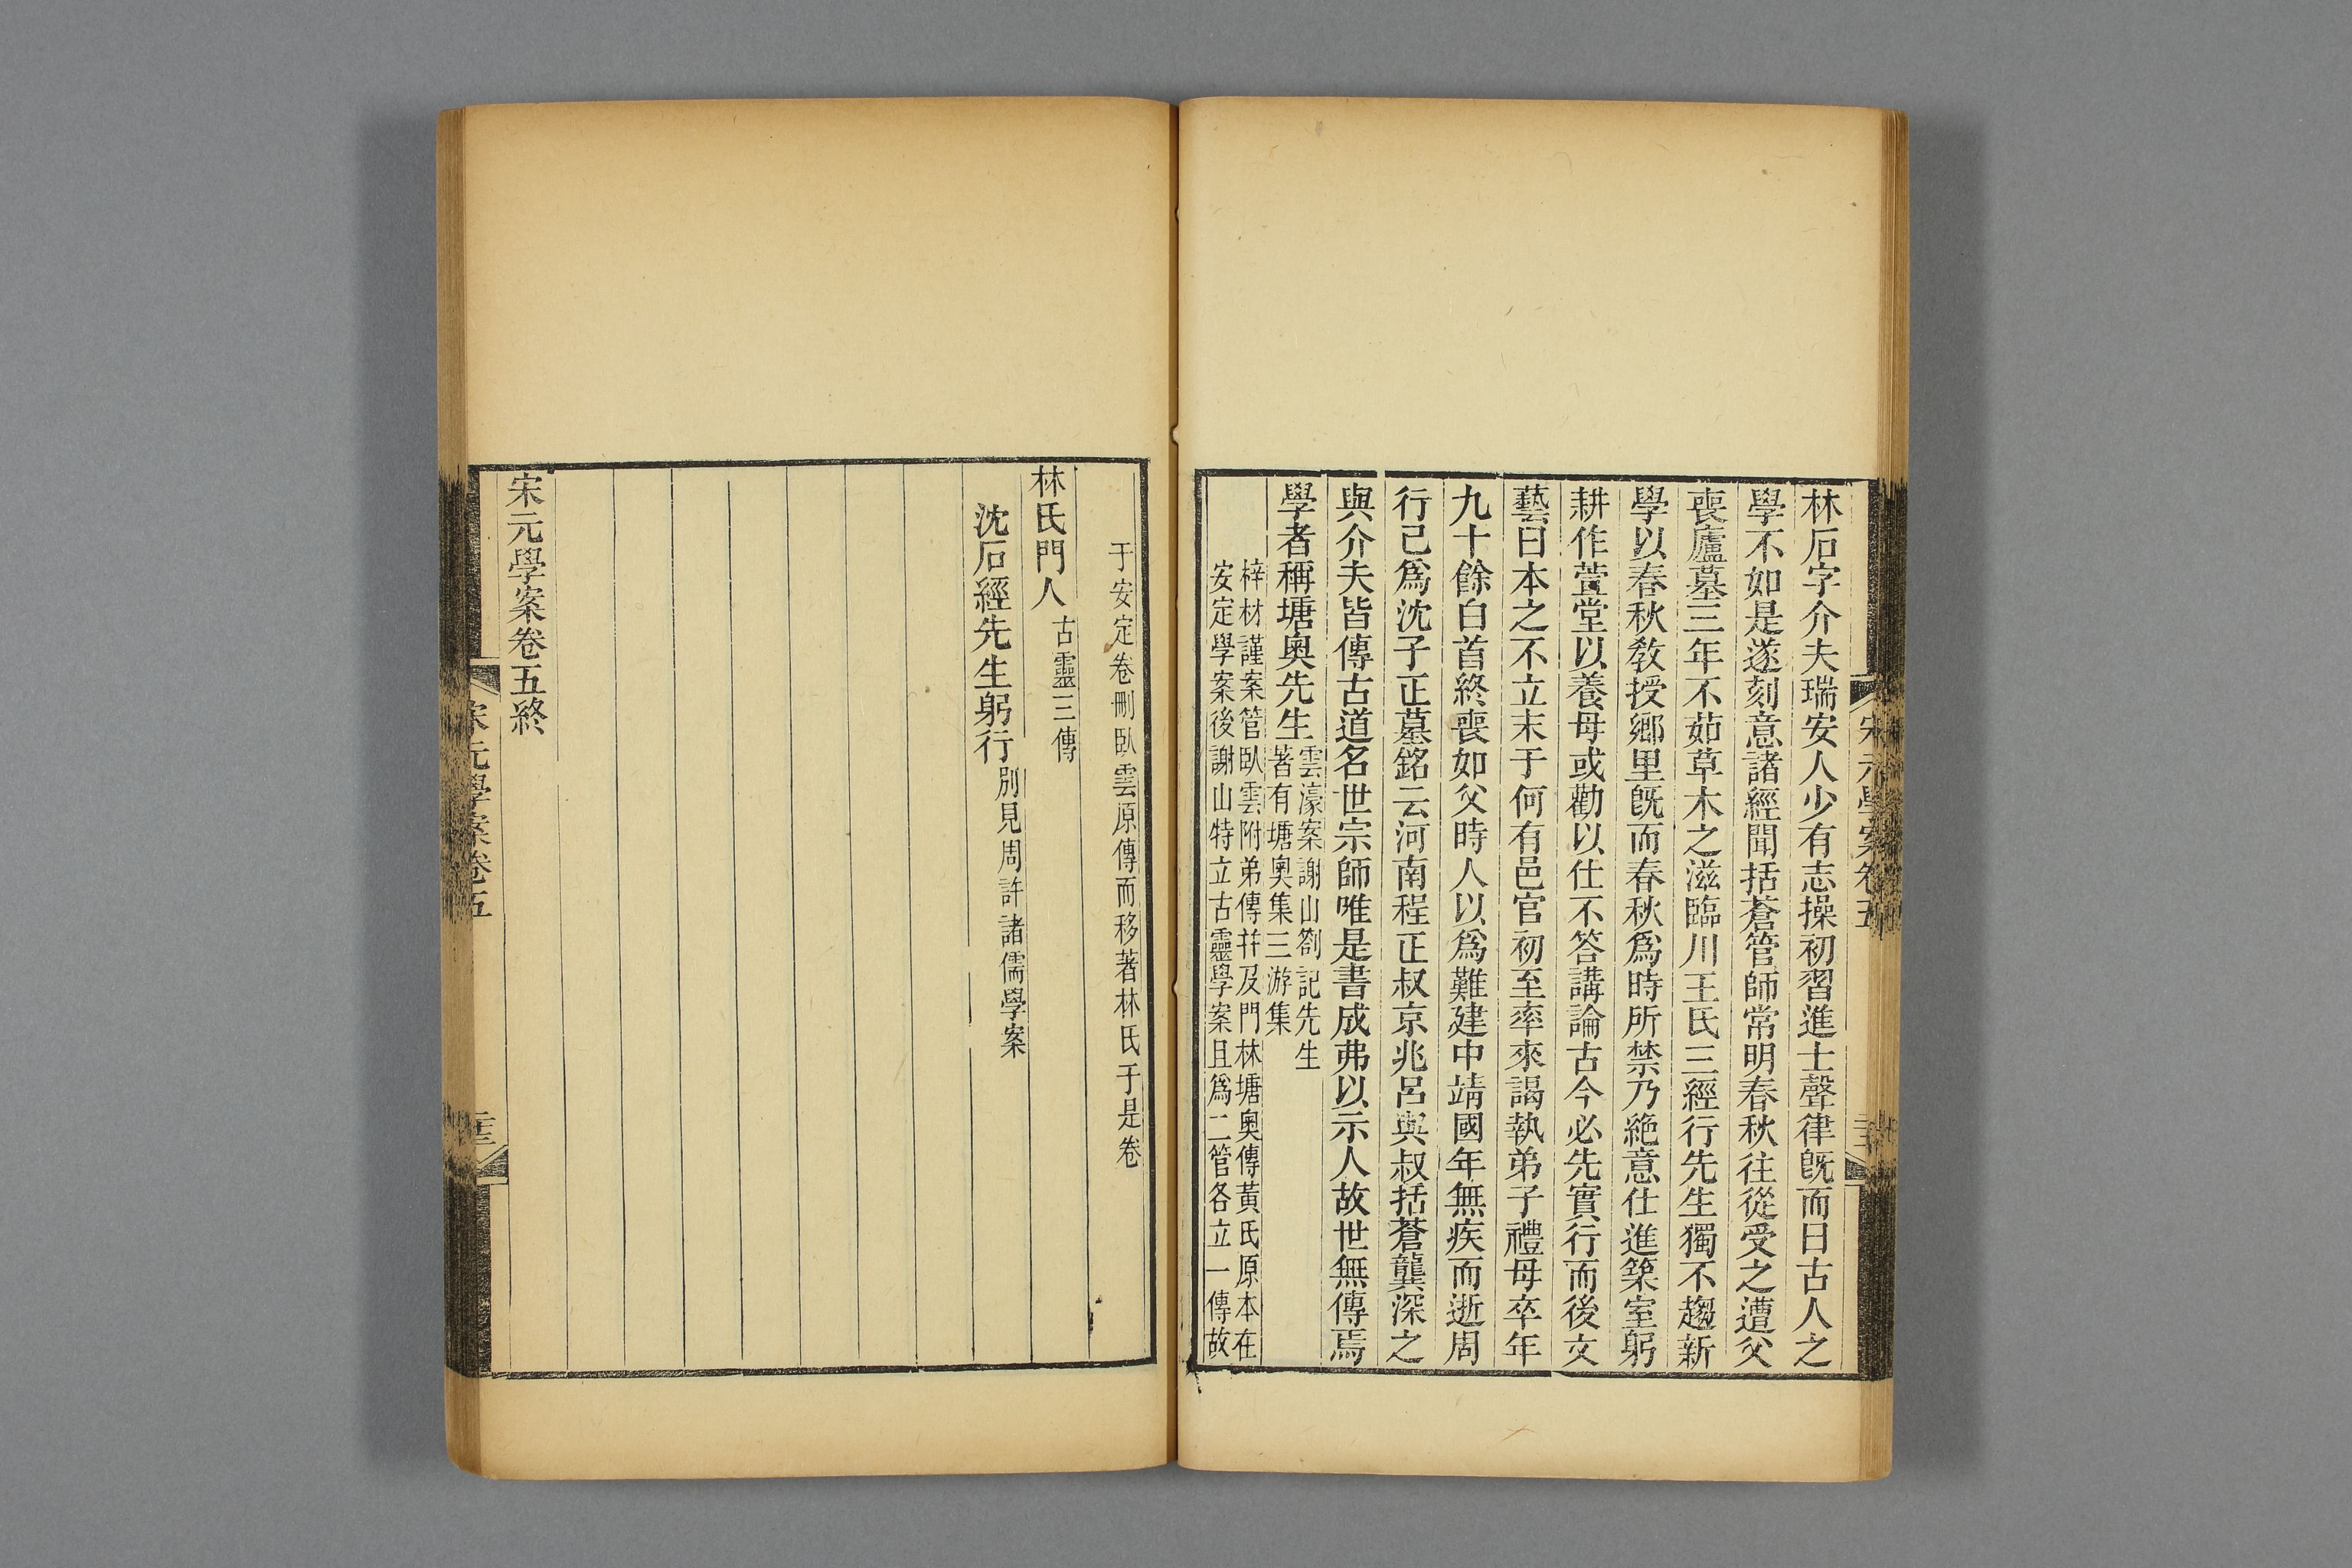 林石字介夫瑞安人少有志操初習進士聲律旣而曰古人之
學不如是遂刻意諸經聞括蒼管師常明春秋往從受之遭父
喪廬墓三年不茹草木之滋臨川王氏三經行先生獨不趨新
學以春秋敎授鄉里旣而春秋爲時所禁乃絶意仕進築室躬
耕作萱堂以養母或勸以仕不答講論古今必先實行而後文
藝曰本之不立末于何有邑官初至率來謁執弟子禮母卒年
九十餘白首終喪如父時人以爲難建中靖國年無疾而逝周
行己爲沈子正墓銘云河南程正叔京兆呂與叔括蒼龔深之
與介夫皆傳古道名世宗師唯是書成弗以示人故世無傳焉
學者稱塘奥先生
雲濠案謝山劄記先生
著有塘奥集三游集
梓材謹案管臥雲附弟傳并及門林塘奥傳黃氏原本在
安定學案後謝山特立古靈學案且爲二管各立一傳故
宋元學案卷五
于安定卷刪臥雲原傳而移著林氏于是卷
林氏門人古靈三傳
沈石經先生躬行別見周許諸儒學案
宋元學案卷五終
宋元學案卷五